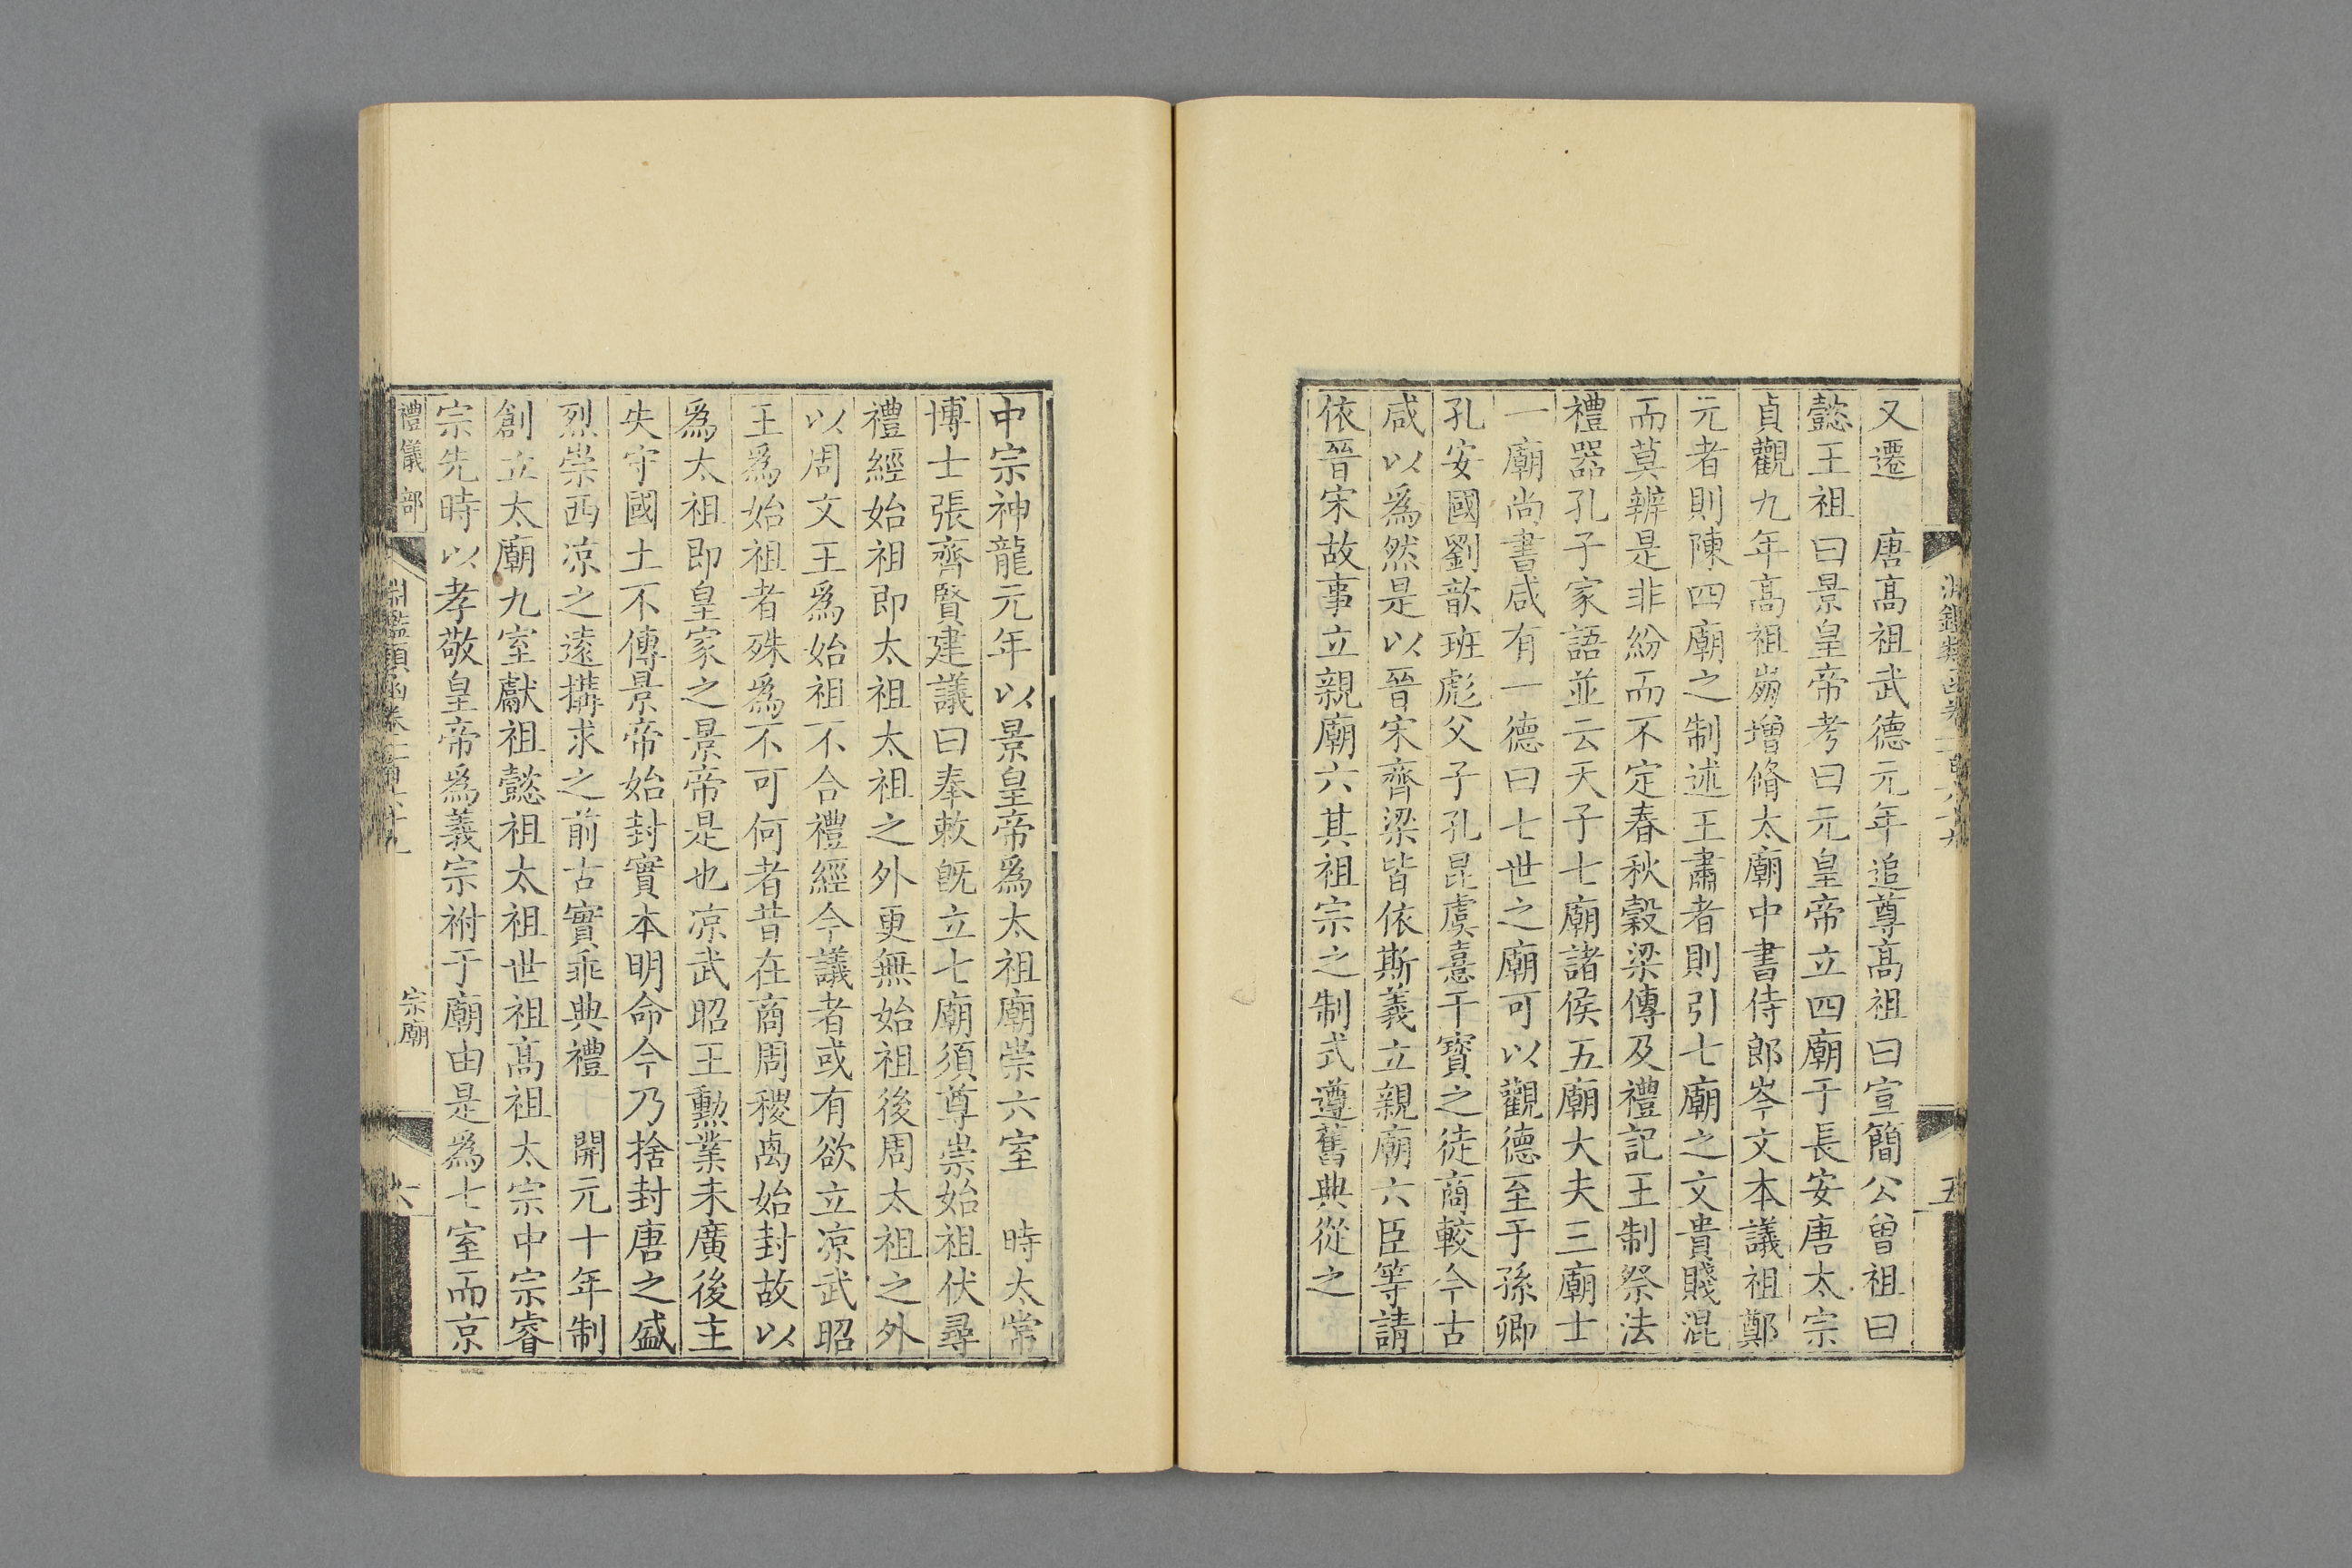 又遷　唐髙祖武德元年追尊髙祖曰宣簡公曾祖曰
懿王祖曰景皇帝考曰元皇帝立四廟于長安唐太宗
貞觀九年髙祖崩增脩太廟中書侍郎岑文本議祖鄭
元者則陳四廟之制述王肅者則引七廟之文貴賤混
而莫辨是非紛而不定春秋穀梁傳及禮記王制祭法
禮器孔子家語並云天子七廟諸侯五廟大夫三廟士
一廟尚書咸有一德曰七世之廟可以觀德至于孫卿
孔安國劉歆班彪父子孔昆虞憙干寶之徒商較今古
咸以爲然是以晉宋齊梁皆依斯義立親廟六臣等請
依晉宋故事立親廟六其祖宗之制式遵舊典從之
五
中宗神龍元年以景皇帝爲太祖廟崇六室　時太常
博士張齊賢建議曰奉敕旣立七廟須尊崇始祖伏尋
禮經始祖即太祖太祖之外更無始祖後周太祖之外
以周文王爲始祖不合禮經今議者或有欲立凉武昭
王爲始祖者殊爲不可何者昔在商周稷卨始封故以
爲太祖即皇家之景帝是也凉武昭王勲業未廣後主
失守國土不傳景帝始封實本明命今乃捨封唐之盛
烈崇西凉之遠搆求之前古實乖典禮　開元十年制
創立太廟九室獻祖懿祖太祖世祖髙祖太宗中宗睿
宗先時以孝敬皇帝爲義宗祔于廟由是爲七室而京
禮儀部　淵鑑類函卷一百六十九　宗廟　六